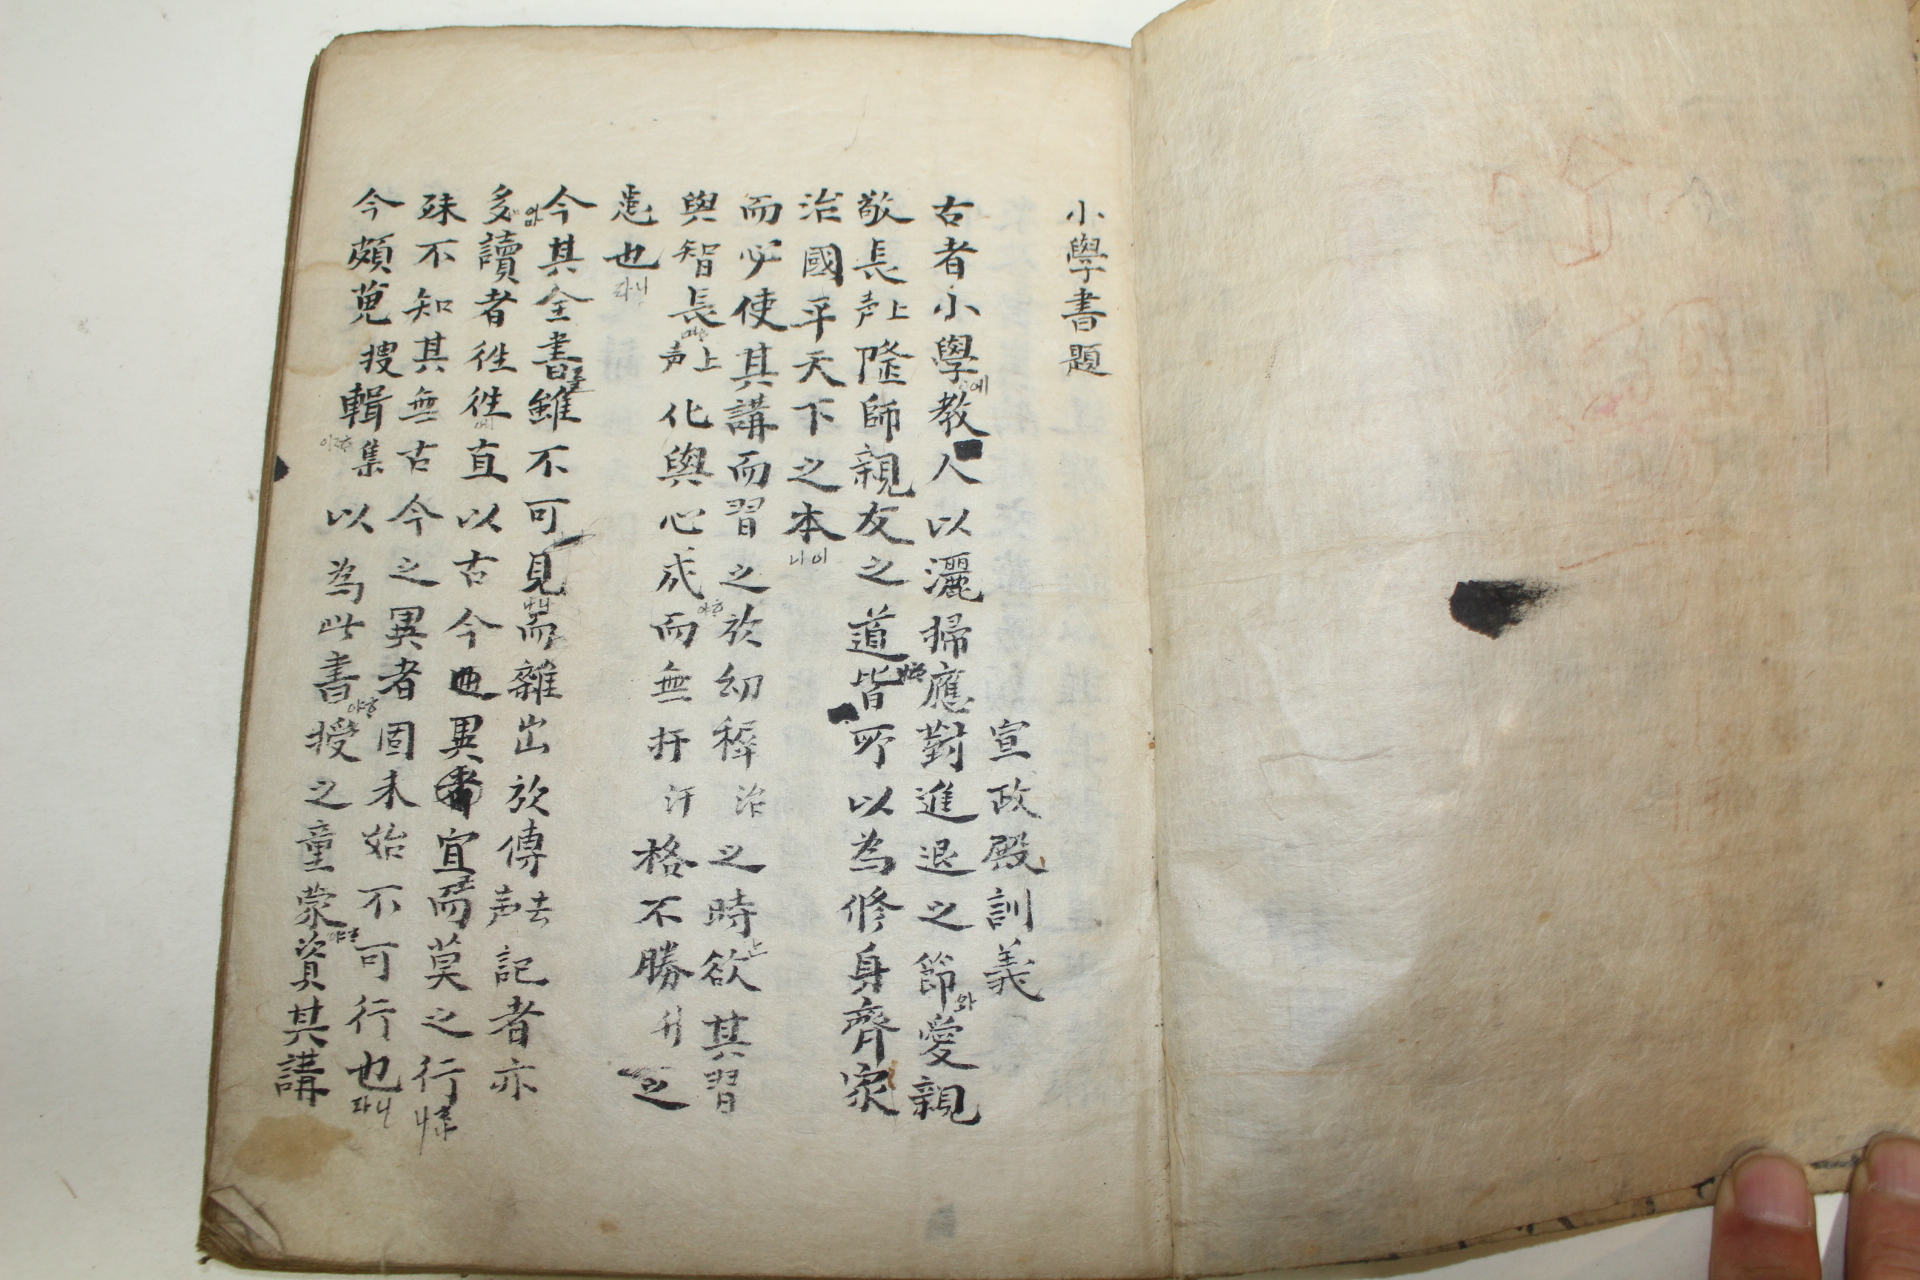 小學書題
宣政殿訓義
古者小學에教人以灑掃應對進退之節와愛親
敬長上声隆師親友之道皆所以為修身齊家
治國平天下之本이니
而必使其講而習之於幼穉治之時欲其習
與智長上声化與心成而無扞汗格不勝升之
患也라니
今其全書雖不可見而雜出於傳去声記者亦
多讀者徃徃에直以古今異宜而莫之行
殊不知其無古今之異者固未始不可行也라니
今頗蒐搜輯集以為此書授之童蒙資其講